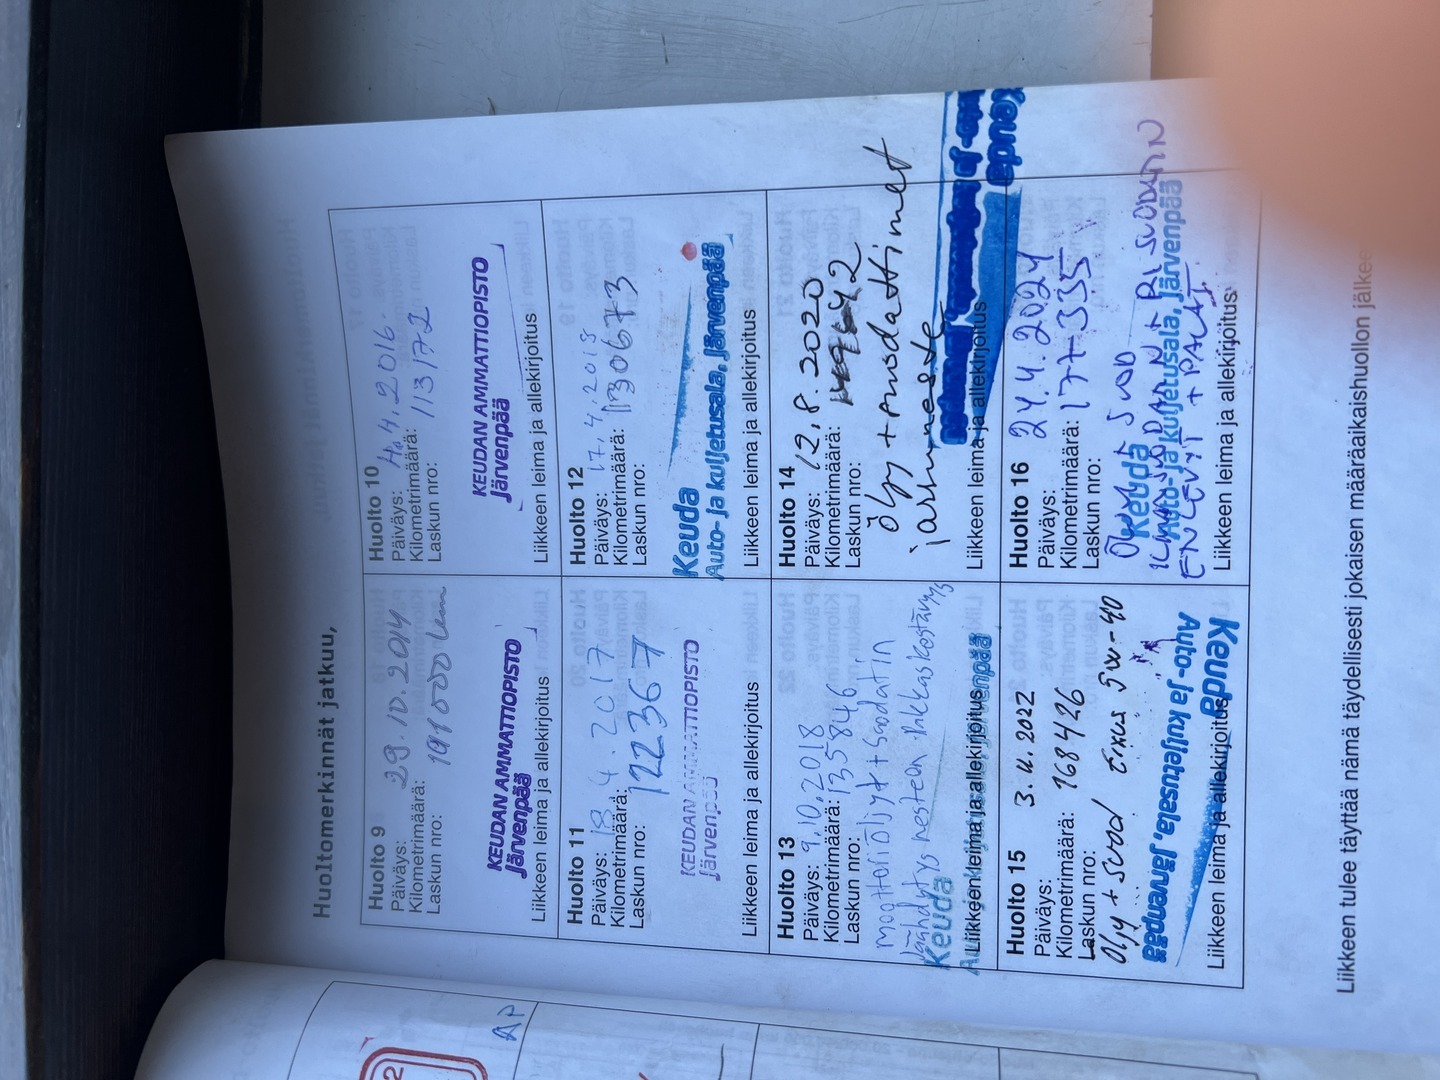 Huoltomerkinnät jatkuu,
Huolto 9
Päiväys: 29.10.2014
Kilometrimäärä:
Laskun nro: 191000 km
KEUDAN AMMATTIOPISTO
Järvenpää
Liikkeen leima ja allekirjoitus
Huolto 10
Päiväys: 4.2016.
Kilometrimäärä: 113172
Laskun nro:
KEUDAN AMMATTIOPISTO
Järvenpää
Liikkeen leima ja allekirjoitus
Huolto 11
Päiväys: 18.4.2017
Kilometrimäärä: 122367
Laskun nro:
KEUDAN AMMATTIOPISTO
Järvenpää
Liikkeen leima ja allekirjoitus
Huolto 12
Päiväys: 17.4.2018
Kilometrimäärä: 130673
Laskun nro:
Keuda
Auto- ja kuljetusala, Järvenpää
Liikkeen leima ja allekirjoitus
Huolto 13
Päiväys: 9.10.2018
Kilometrimäärä: 135846
Laskun nro:
moottoriöljyt + suodatin
Jäähdytysnesteen pakkaskestävyys
Keuda
Liikkeen leima ja allekirjoitus
Huolto 14
Päiväys: 12.8.2020
Kilometrimäärä:
Laskun nro:
öljy + suodattimet
jarruneste
Liikkeen leima ja allekirjoitus
Huolto 15
Päiväys: 3.11.2022
Kilometrimäärä: 168426
Laskun nro:
Öljy + suod 5W-40
Keuda
Auto- ja kuljetusala, Järvenpää
Liikkeen leima ja allekirjoitus
Huolto 16
Päiväys: 24.4.2024
Kilometrimäärä: 177335
Laskun nro:
ÖLJY + SUOD
Keuda
ILMASUODATIN + RI SUODATIN
Auto- ja kuljetusala, Järvenpää
ETULEVYT + PALAT
Liikkeen leima ja allekirjoitus
Liikkeen tulee täyttää nämä täydellisesti jokaisen määräaikaishuollon jälkee
AP
2